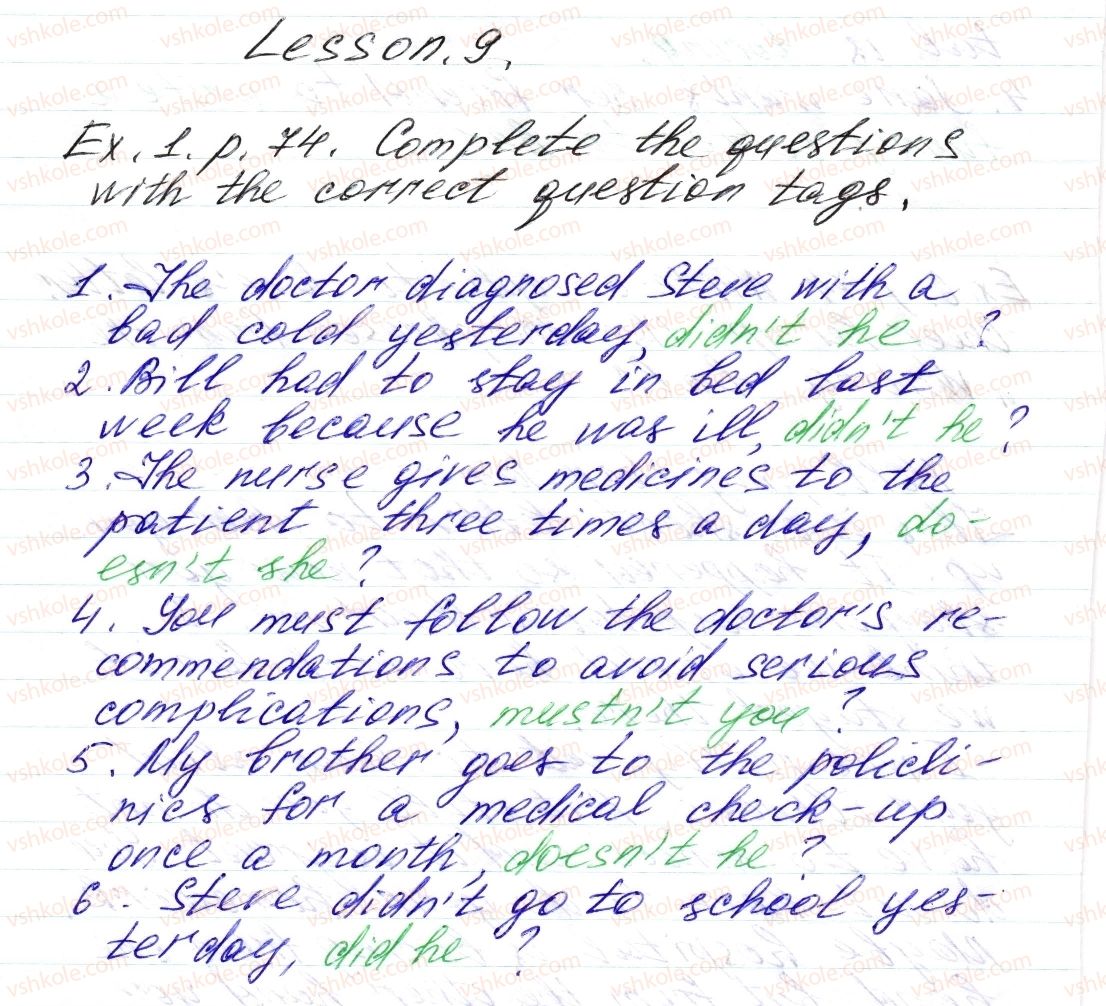 Lesson. 9.
Ex. 1. p. 74. Complete the questions
with the correct question tags.
1. The doctor diagnosed Steve with a
bad cold yesterday, didn't he ?
2. Bill had to stay in bed last
week because he was ill, didn't he ?
3. The nurse gives medicines to the
patient three times a day, do-
esn't she ?
4. You must follow the doctor's re-
commendations to avoid serious
complications, mustn't you ?
5. My brother goes to the policli-
nics for a medical check-up
once a month, doesn't he ?
6. Steve didn't go to school yes-
terday, did he ?
vshkole.com